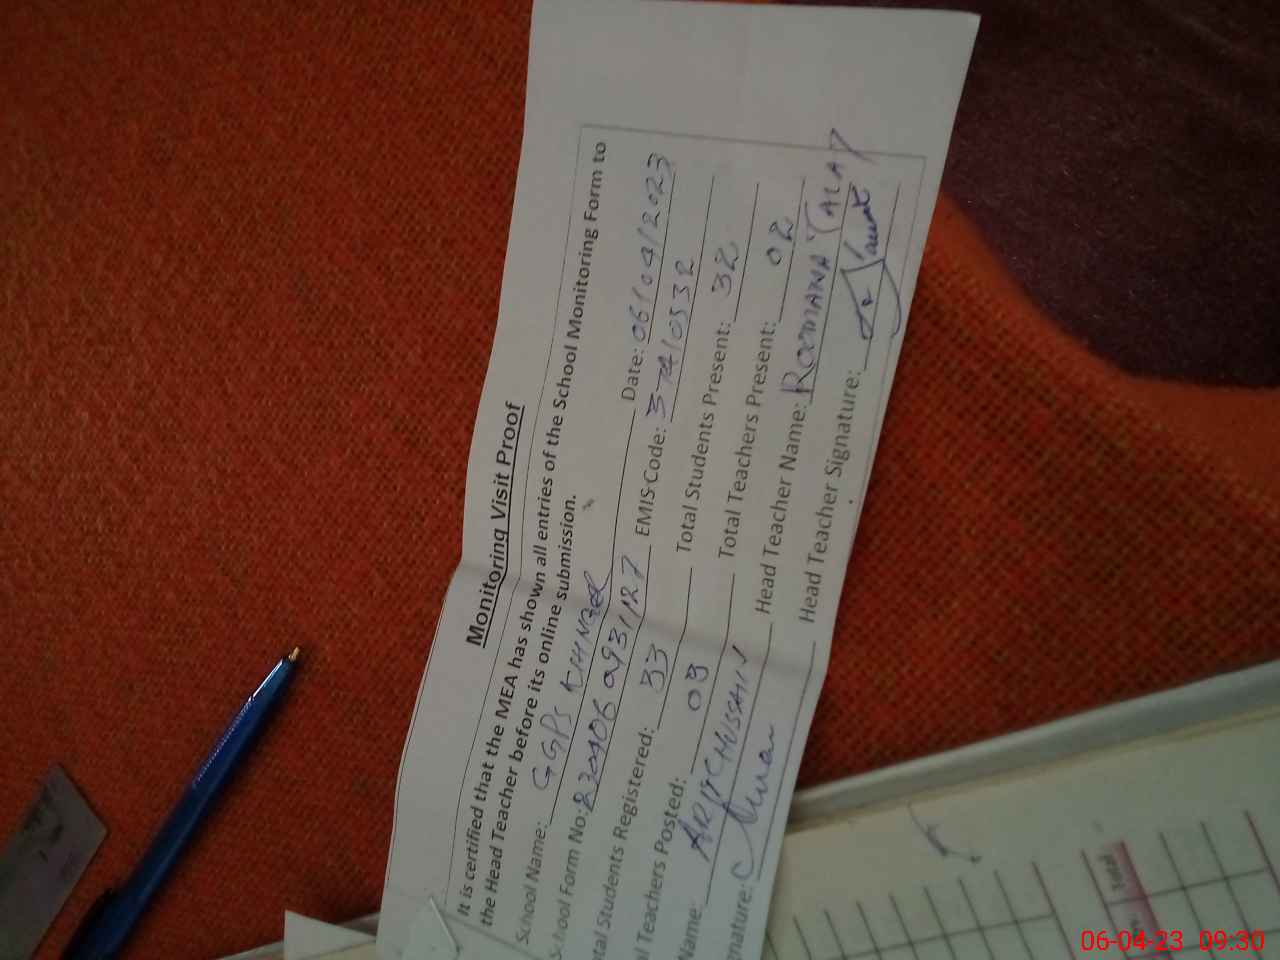 Monitoring Visit Proof
It is certified that the MEA has shown all entries of the School Monitoring Form to
the Head Teacher before its online submission.
School Name: GGPS KHINGER Date: 06/04/2023
School Form No: 230406 EMIS Code: 37410532
tal Students Registered: 33 Total Students Present: 32
l Teachers Posted: 03 Total Teachers Present: 02
Name: HUSSAIN Head Teacher Name: ROOMANA TALAT
nature: Head Teacher Signature:
Total
06-04-23 09:30